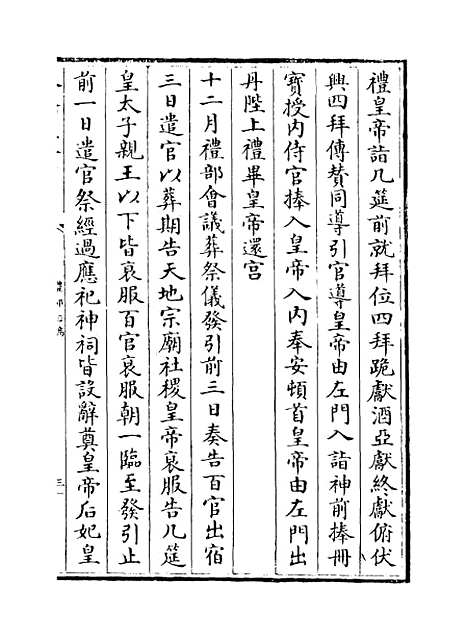 禮皇帝詣几筵前就拜位四拜跪獻酒亞獻終獻俯伏
興四拜傳贊同導引官導皇帝由左門入詣神前捧冊
寶授内侍官捧入皇帝入内奉安頓首皇帝由左門出
丹陛上禮畢皇帝還宫
十二月禮部會議葬祭儀發引前三日奏告百官出宿
三日遣官以葬期告天地宗廟社稷皇帝衰服告几筵
皇太子親王以下皆衰服百官衰服朝一臨至發引止
前一日遣官祭經過應祀神祠皆設辭奠皇帝后妃皇